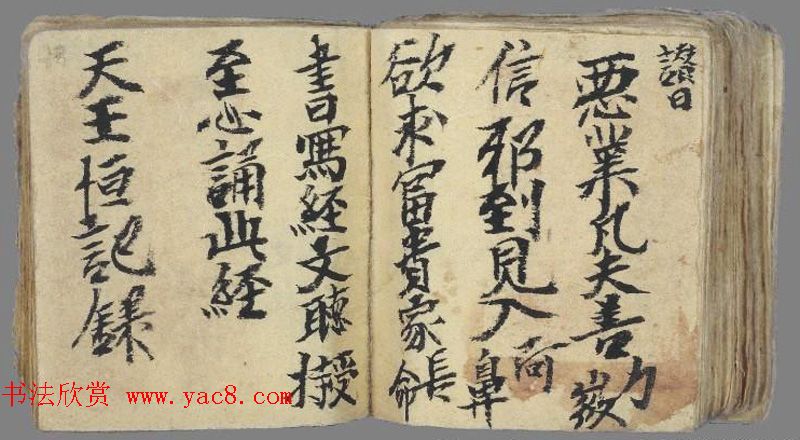 讚曰
惡業凡夫善力微
信邪到見入阿鼻
欲求富貴家長命
書寫経文聽授
至心誦此経
天王恒記錄
书法欣赏 www.yac8.com